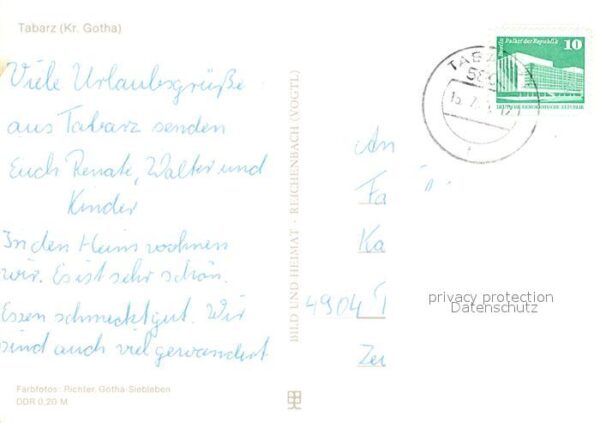 Tabarz (Kr. Gotha)
Viele Urlaubsgrüße
aus Tabarz senden
Euch Renate, Walter und
Kinder
In den Heim wohnen
wir. Es ist sehr schön.
Essen schmeckt gut. Wir
sind auch viel gewandert
Farbfotos: Richter, Gotha-Siebleben
DDR 0,20 M
BILD UND HEIMAT · REICHENBACH (VOGTL)
Berlin Palast der Republik
10
DEUTSCHE DEMOKRATISCHE REPUBLIK
TABA
An
Fa
Ka
4904
Zei
privacy protection
Datenschutz